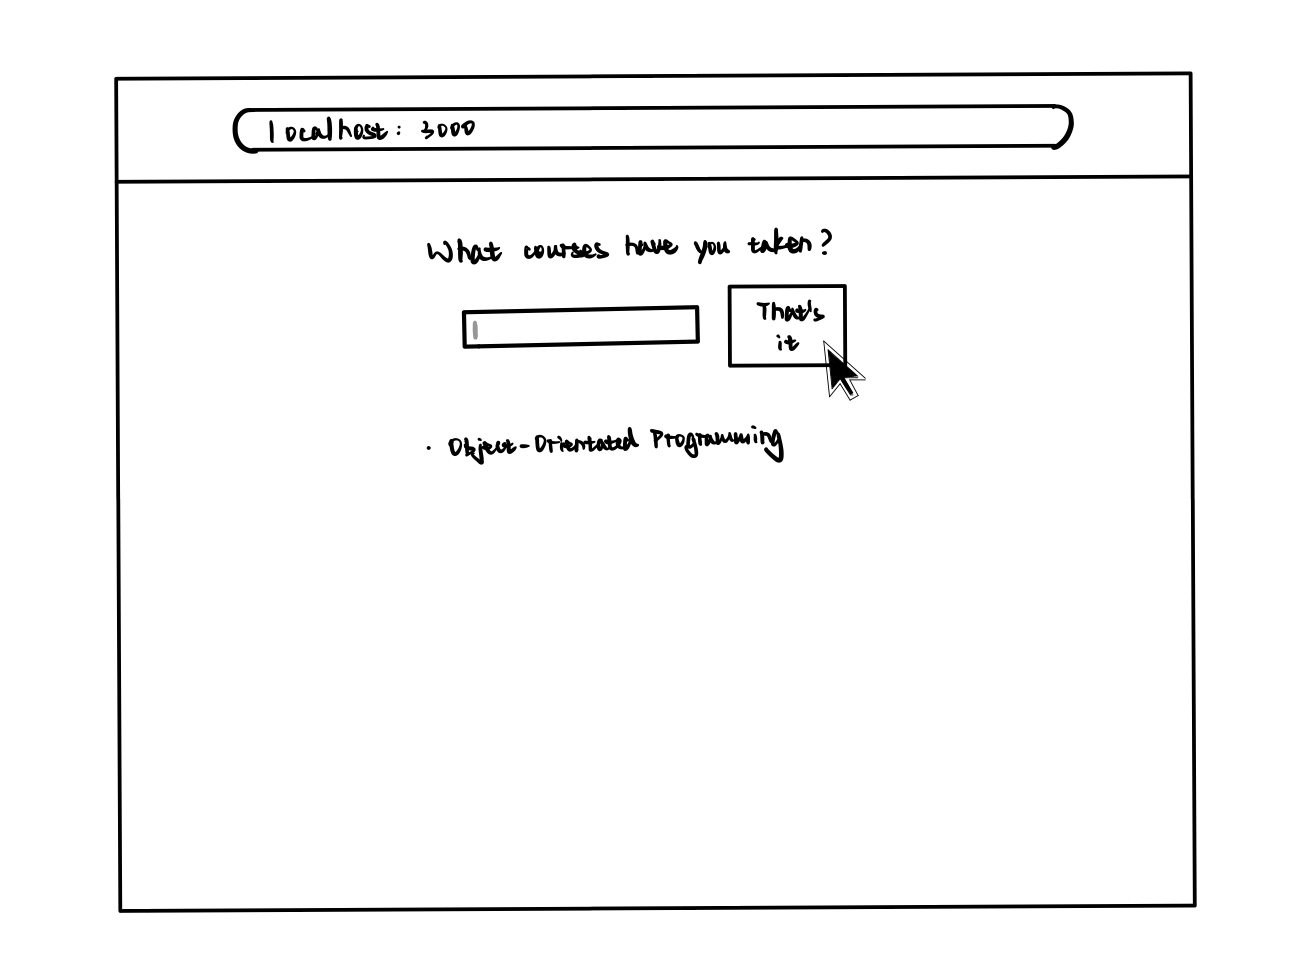 localhost: 3000
What courses have you taken?
That's
it
· Object-Orientated Programming